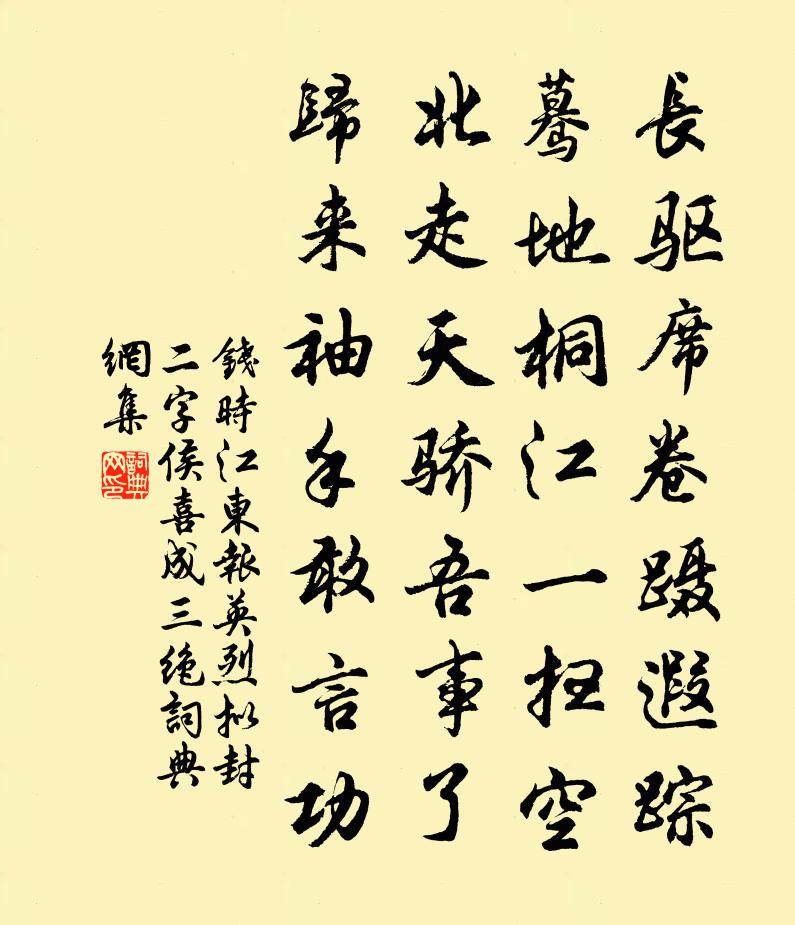 長驱席卷蹑遐踪
蓦地桐江一扫空
北走天骄吾事了
歸来袖手敢言功
錢時江東報英烈拟封
二字侯喜成三绝詞典
網集
詞典網印